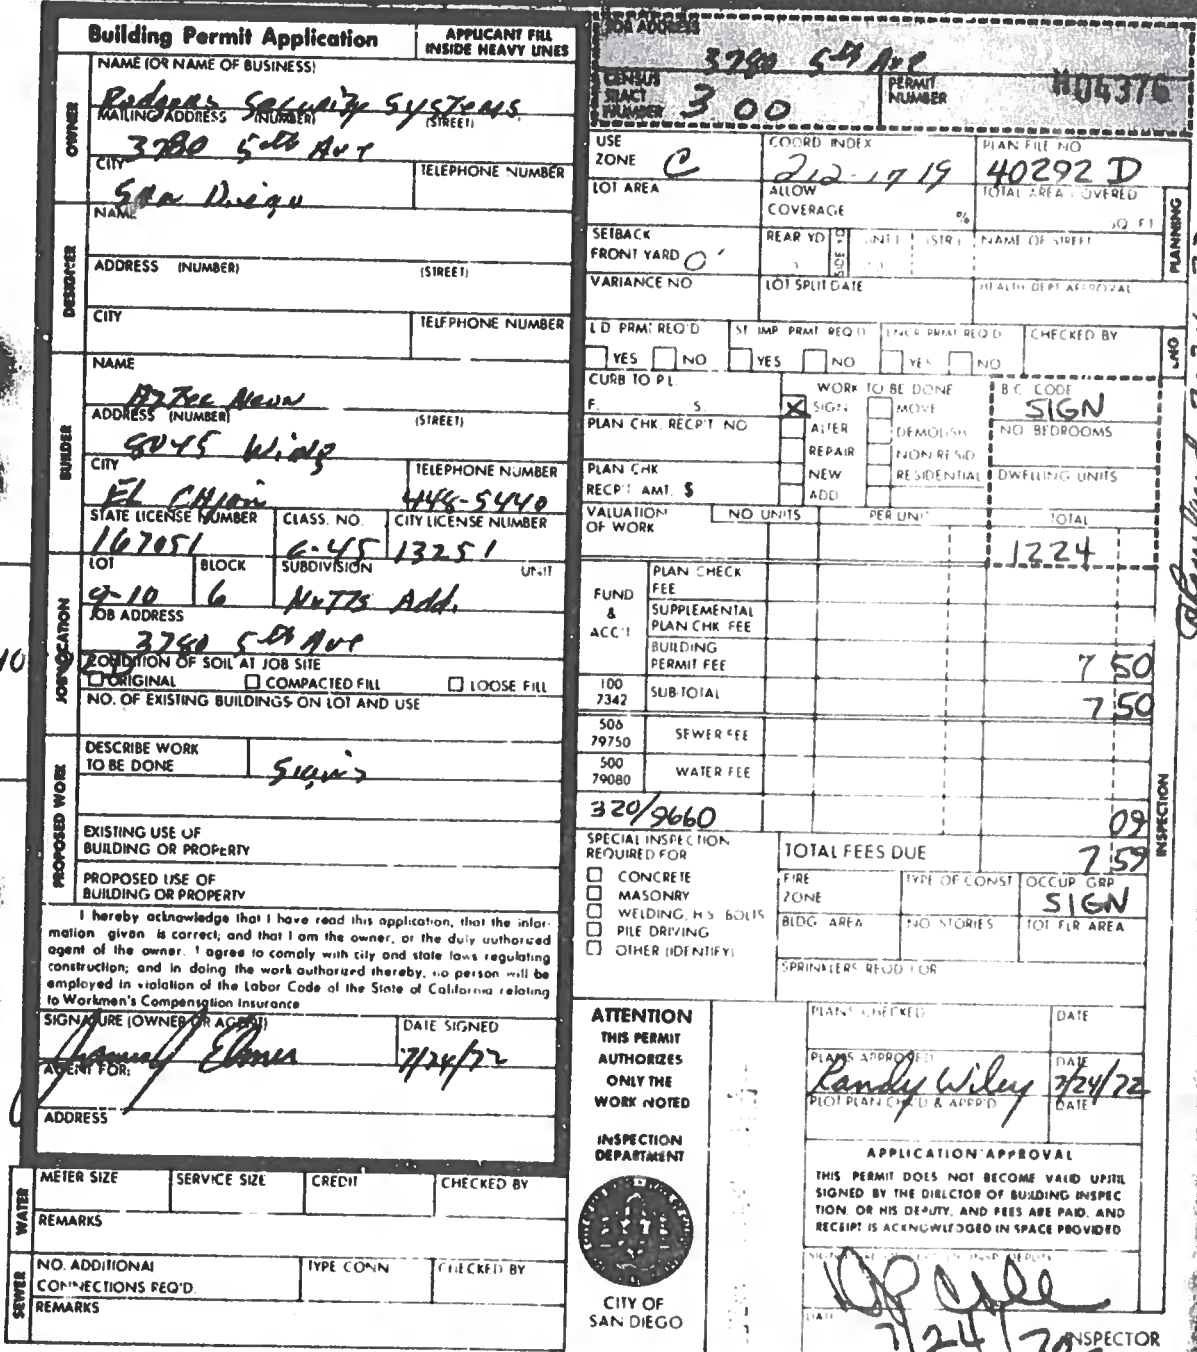 Building Permit Application
APPLICANT FILL
INSIDE HEAVY LINES
OWNER
NAME (OR NAME OF BUSINESS)
Rodgers Security Systems
MAILING ADDRESS (NUMBER) (STREET)
3780 5th Ave
CITY
TELEPHONE NUMBER
San Diego
DESIGNER
NAME
ADDRESS (NUMBER) (STREET)
CITY
TELEPHONE NUMBER
BUILDER
NAME
Aztec Neon
ADDRESS (NUMBER) (STREET)
8045 Wing
CITY
TELEPHONE NUMBER
EL CAjon 448-5440
STATE LICENSE NUMBER CLASS. NO. CITY LICENSE NUMBER
167051 C-45 13251
JOB LOCATION
LOT BLOCK SUBDIVISION UNIT
9-10 6 Nutts Add.
JOB ADDRESS
3780 5th Ave
CONDITION OF SOIL AT JOB SITE
ORIGINAL COMPACTED FILL LOOSE FILL
NO. OF EXISTING BUILDINGS ON LOT AND USE
PROPOSED WORK
DESCRIBE WORK
TO BE DONE
Signs
EXISTING USE OF
BUILDING OR PROPERTY
PROPOSED USE OF
BUILDING OR PROPERTY
I hereby acknowledge that I have read this application, that the infor-
mation given is correct; and that I am the owner, or the duly authorized
agent of the owner. I agree to comply with city and state laws regulating
construction; and in doing the work authorized thereby, no person will be
employed in violation of the Labor Code of the State of California relating
to Workmen's Compensation Insurance
SIGNATURE (OWNER OR AGENT)
DATE SIGNED
7/24/72
AGENT FOR:
ADDRESS
WATER
METER SIZE SERVICE SIZE CREDIT CHECKED BY
REMARKS
SEWER
NO. ADDITIONAL
CONNECTIONS REQ'D.
TYPE CONN CHECKED BY
REMARKS
JOB ADDRESS
3780 5th Ave
CENSUS
TRACT
NUMBER
3 00
PERMIT
NUMBER
H04376
USE
ZONE
C
COORD INDEX
212-1719
PLAN FILE NO
40292 D
LOT AREA
ALLOW
COVERAGE %
TOTAL AREA COVERED
SQ. FT.
PLANNING
SETBACK
FRONT YARD 0'
REAR YD
SIDE YD
NAME OF STREET
VARIANCE NO
LOT SPLIT DATE
HEALTH DEPT APPROVAL
L D PRMT REQ'D ST IMP PRMT REQ'D ENCR PRMT REQ'D CHECKED BY
YES NO YES NO YES NO
ENG
CURB TO P.L.
F. S.
PLAN CHK. RECP'T NO
PLAN CHK
RECP'T AMT. $
WORK TO BE DONE
X SIGN MOVE
ALTER DEMOLISH
REPAIR NON RESID
NEW RESIDENTIAL
ADD
B.C. CODE
SIGN
NO. BEDROOMS
DWELLING UNITS
VALUATION
OF WORK
NO UNITS PER UNIT TOTAL
1224
FUND
&
ACC'T
PLAN CHECK
FEE
SUPPLEMENTAL
PLAN CHK FEE
BUILDING
PERMIT FEE
7 50
100
7342
SUB-TOTAL 7 50
506
79750
SEWER FEE
500
79080
WATER FEE
320/9660 09
INSPECTION
SPECIAL INSPECTION
REQUIRED FOR
CONCRETE
MASONRY
WELDING, H.S. BOLTS
PILE DRIVING
OTHER (IDENTIFY)
TOTAL FEES DUE 7 59
FIRE
ZONE
TYPE OF CONST
OCCUP GRP
SIGN
BLDG. AREA NO. STORIES TOT FLR AREA
SPRINKLERS REQD FOR
ATTENTION
THIS PERMIT
AUTHORIZES
ONLY THE
WORK NOTED
INSPECTION
DEPARTMENT
CITY OF
SAN DIEGO
PLANS CHECKED DATE
PLANS APPROVED DATE
Randy Wiley 7/24/72
PLOT PLAN CHK'D & APPR'D DATE
APPLICATION APPROVAL
THIS PERMIT DOES NOT BECOME VALID UNTIL
SIGNED BY THE DIRECTOR OF BUILDING INSPEC
TION, OR HIS DEPUTY, AND FEES ARE PAID, AND
RECEIPT IS ACKNOWLEDGED IN SPACE PROVIDED
DATE
7/24/72
INSPECTOR